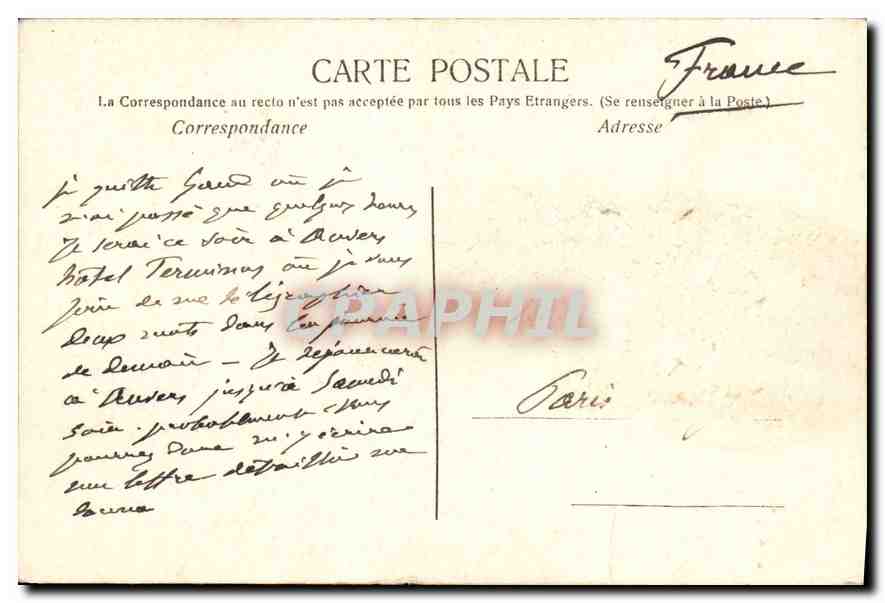 CARTE POSTALE
France
La Correspondance au recto n'est pas acceptée par tous les Pays Etrangers. (Se renseigner à la Poste.)
Correspondance
Adresse
je quitte Gand où je
n'ai passé que quelques heures
Je serai ce soir à Anvers
hôtel Terminus où je vous
prie de me télégraphier
deux mots dans la journée
de demain — Je séjournerai
à Anvers jusqu'à Samedi
soir probablement – vous
pourrez donc m'y écrire
une lettre détaillée
Paris
CPAPHIL